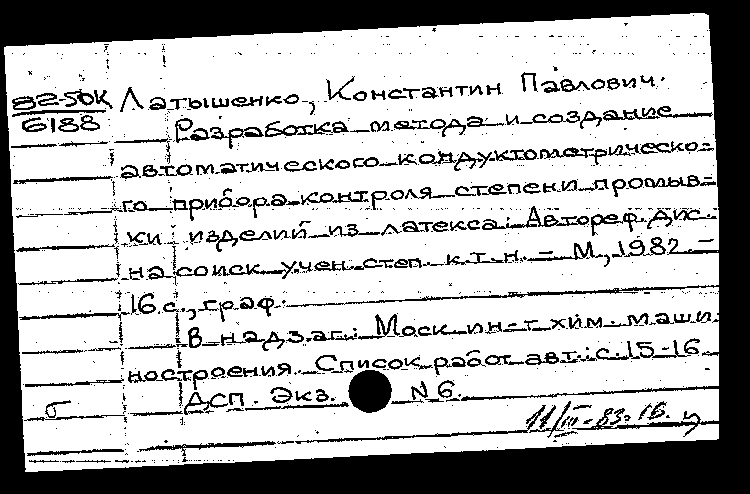 82-50К Латышенко, Константин Павлович.
6188 Разработка метода и создание
автоматического кондуктометрическо=
го прибора контроля степени промыв=
ки изделий из латекса: Автореф. дис.
на соиск. учен. степ. к.т.н. – М., 1982. –
16 с., граф.
В надзаг.: Моск. ин-т хим. маши
ностроения. Список работ авт.: с. 15-16
ДСП. Экз. N 6.
б
11/III-83. 16.